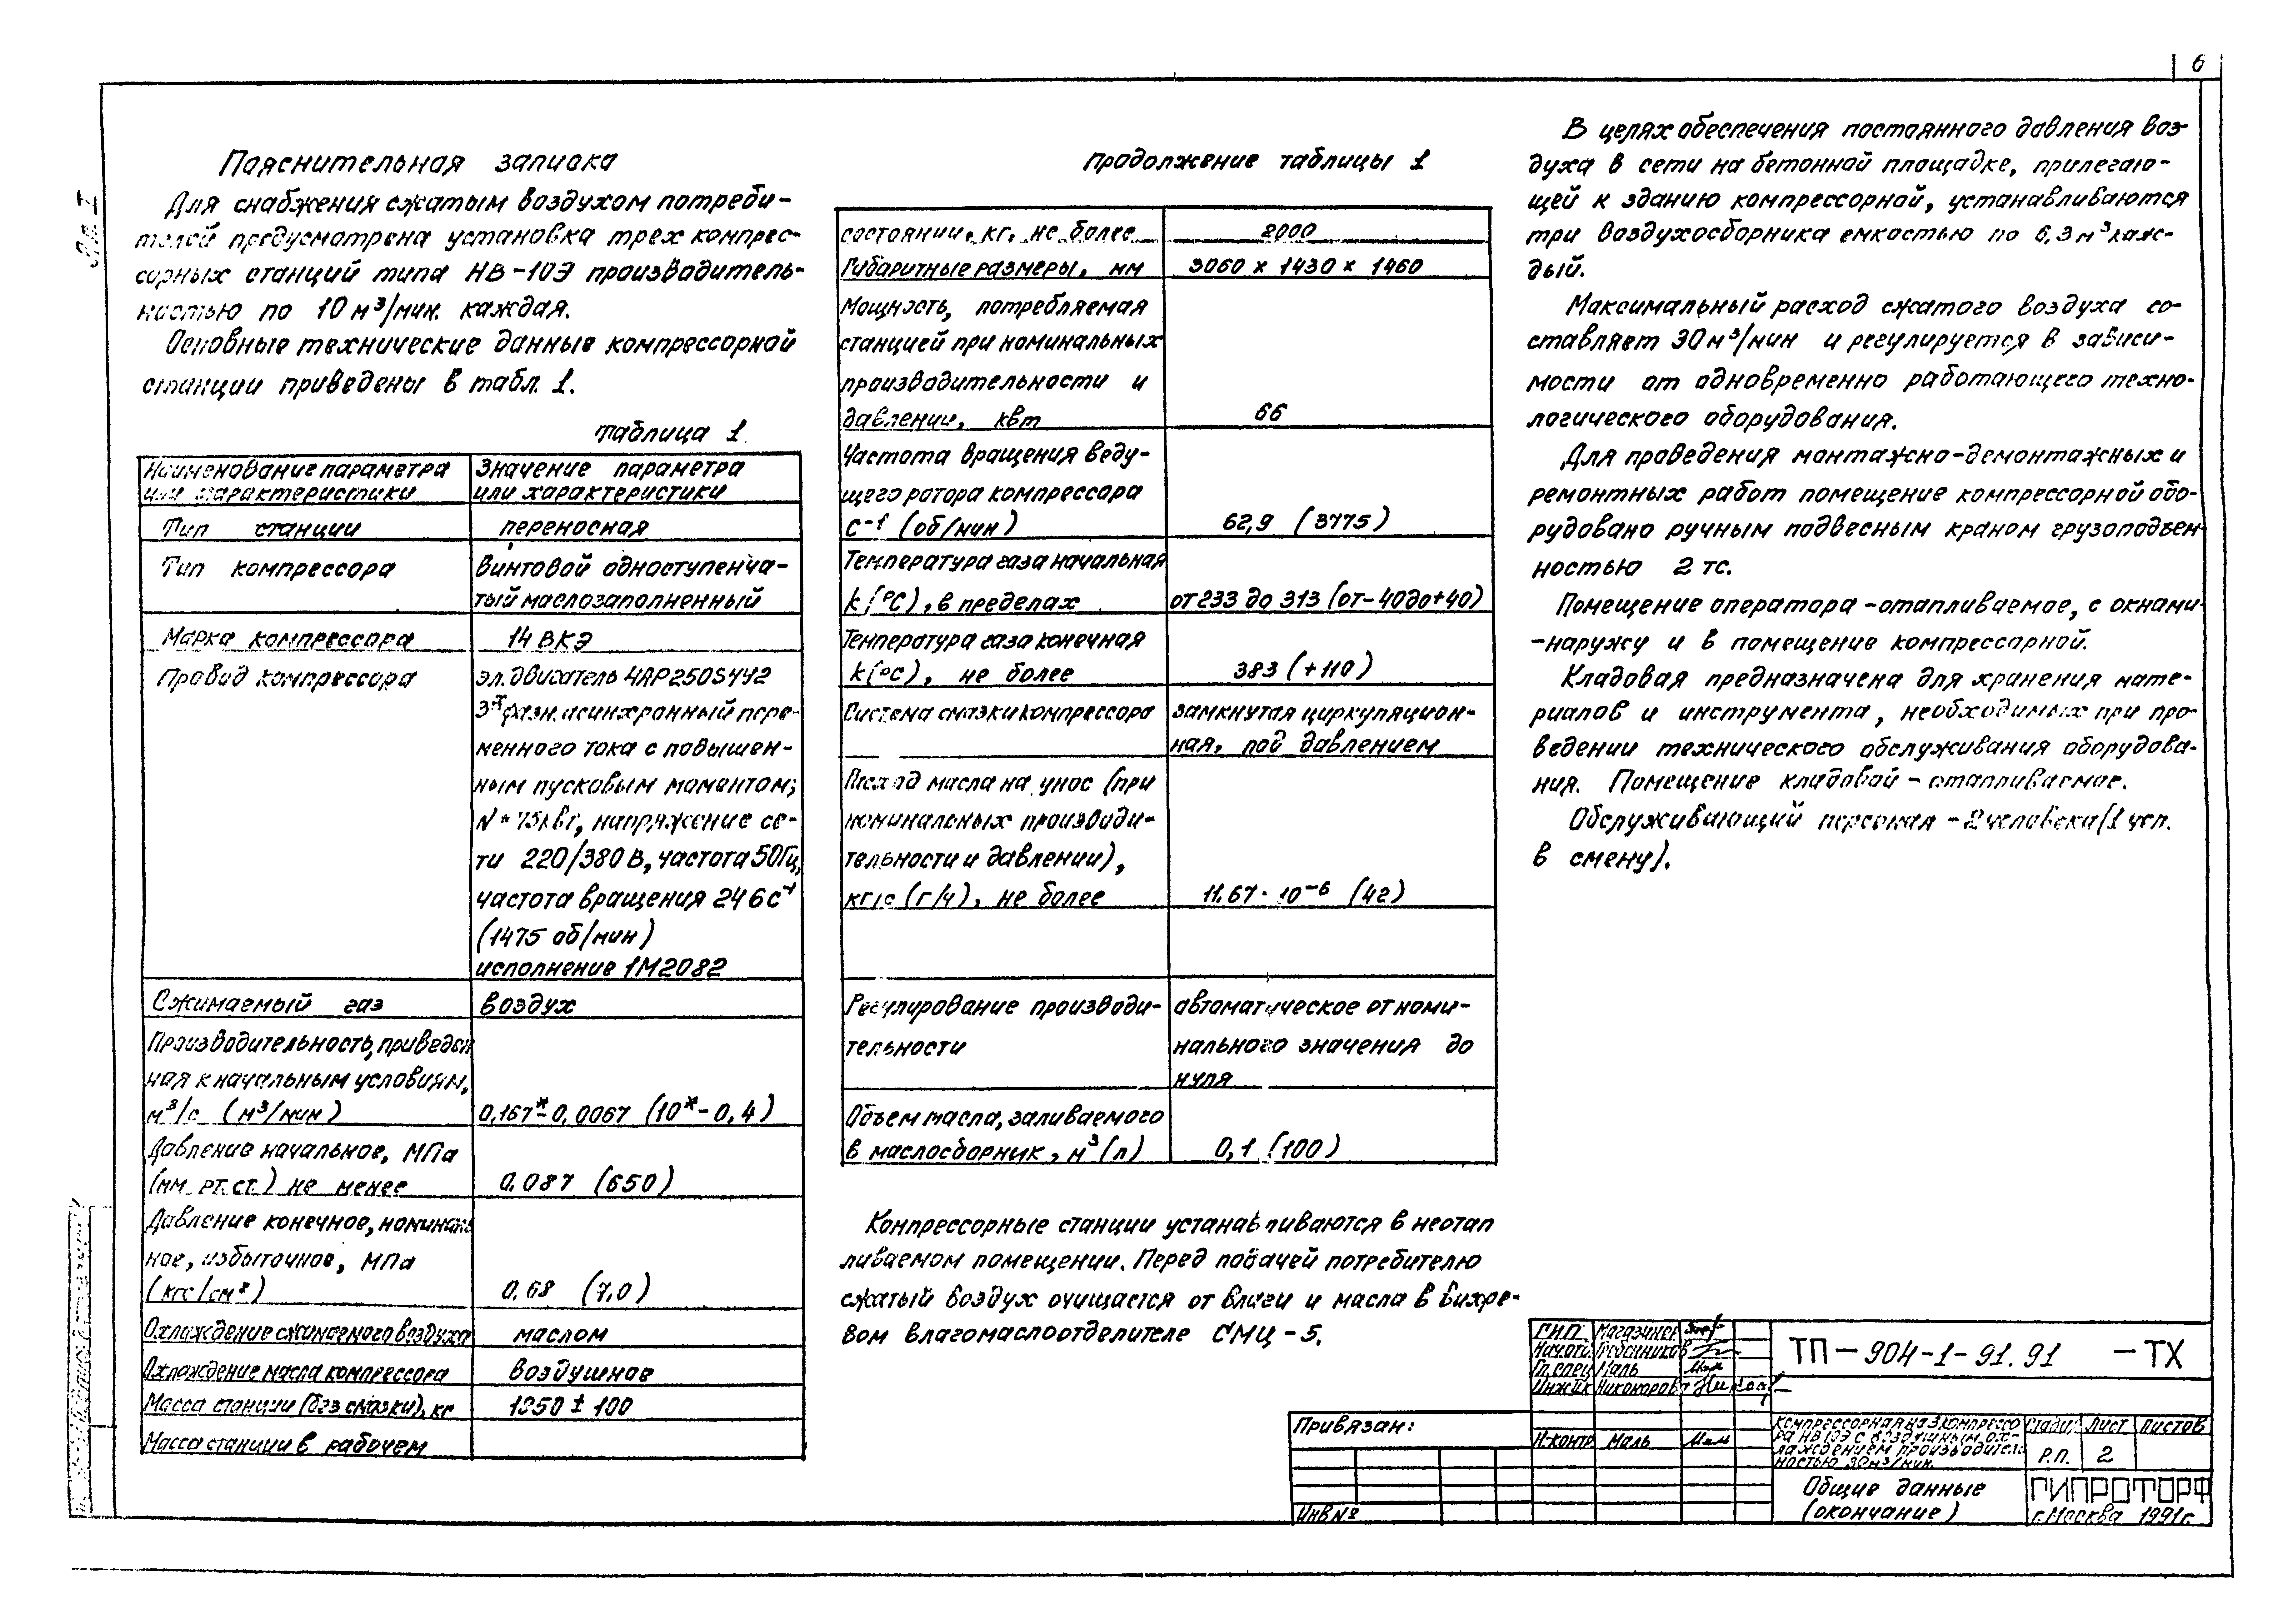 6
Пояснительная записка
Для снабжения сжатым воздухом потреби-
телей предусмотрена установка трех компрес-
сорных станций типа НВ-10Э производитель-
ностью по 10 м³/мин. каждая.
Основные технические данные компрессорной
станции приведены в табл. 1.
таблица 1.
Наименование параметра
или характеристики
Значение параметра
или характеристики
Тип станции
переносная
Тип компрессора
Винтовой одноступенча-
тый маслозаполненный
Марка компрессора
14 ВКЭ
Привод компрессора
эл. двигатель 4АР250S4У2
3х фазн. асинхронный пере-
менного тока с повышен-
ным пусковым моментом;
N = 75 кВт, напряжение се-
ти 220/380 В, частота 50 Гц,
частота вращения 24 6 с⁻¹
(1475 об/мин)
исполнение 1М2082
Сжимаемый газ
воздух
Производительность, приведен
ная к начальным условиям,
м³/с (м³/мин)
0,167*-0,0067 (10*-0,4)
Давление начальное, МПа
(мм. рт. ст.) не менее
0.087 (650)
Давление конечное, номиналь
ное, избыточное, МПа
(кгс/см²)
0.68 (7,0)
Охлаждение сжимаемого воздуха
маслом
Охлаждение масла компрессора
воздушное
Масса станции (без смазки), кг
1950 ± 100
Масса станции в рабочем
Продолжение таблицы 1
состоянии, кг, не более
2000
Габаритные размеры, мм
3060 × 1430 × 1460
Мощность, потребляемая
станцией при номинальных
производительности и
давлении, квт
66
Частота вращения веду-
щего ротора компрессора
с-1 (об/мин)
62,9 (3775)
Температура газа начальная
k (°С), в пределах
от 233 до 313 (от-40до+40)
Температура газа конечная
k (°С), не более
383 (+110)
Система смазки компрессора
замкнутая циркуляцион-
ная, под давлением
Расход масла на унос (при
номинальных производи-
тельности и давлении),
кг/с (г/ч), не более
11.67 · 10⁻⁶ (42)
Регулирование производи-
тельности
автоматическое от номи-
нального значения до
нуля
Объем масла, заливаемого
в маслосборник, м³ (л)
0,1 (100)
Компрессорные станции устанавливаются в неотап
ливаемом помещении. Перед подачей потребителю
сжатый воздух очищается от влаги и масла в вихре-
вом влагомаслоотделителе СМЦ-5.
В целях обеспечения постоянного давления воз-
духа в сети на бетонной площадке, прилегаю-
щей к зданию компрессорной, устанавливаются
три воздухосборника емкостью по 6,3 м³ каж-
дый.
Максимальный расход сжатого воздуха со-
ставляет 30 м³/мин и регулируется в зависи-
мости от одновременно работающего техно-
логического оборудования.
Для проведения монтажно-демонтажных и
ремонтных работ помещение компрессорной обо-
рудовано ручным подвесным краном грузоподъем-
ностью 2 тс.
Помещение оператора - отапливаемое, с окнами-
-наружу и в помещение компрессорной.
Кладовая предназначена для хранения мате-
риалов и инструмента, необходимых при про-
ведении технического обслуживания оборудова-
ния. Помещение кладовой - отапливаемое.
Обслуживающий персонал - 2 человека (1 чел.
в смену).
ГИП Магазинер
Нач.отд
Гл.спец Маль
Инж.IIк Никонорова
Н.контр Маль
ТП-904-1-91.91 -ТХ
Привязан:
Инв №
Компрессорная на 3 компрессо
ра НВ 10Э с воздушным ох-
лаждением производитель
ностью 30 м³/мин.
Стадия Лист Листов
Р.П. 2
Общие данные
(окончание)
ГИПРОТОРФ
г. Москва 1991 г.